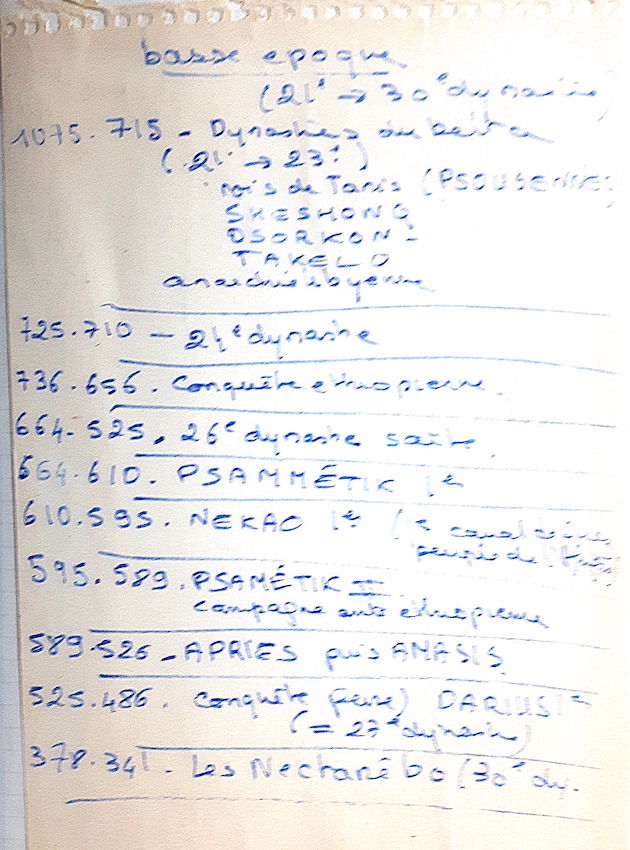 basse epoque
(21e → 30e dynastie)
1075.715 - Dynasties du Delta
(21e → 23e)
rois de Tanis (PSOUSENNES
SHESHONQ
OSORKON -
TAKELO
anarchie libyenne
725.710 - 24e dynastie
736.656. Conquête ethiopienne.
664.525. 26e dynastie saïte.
664.610. PSAMMÉTIK Ier
610.595. NEKAO Ier (
595.589. PSAMÉTIK II
campagne anti éthiopienne
589.526 - APRIES puis AMASIS
525.486. Conquête perse) DARIUS Ier
(= 27e dynastie)
378.341 - Les Nectanébo (30e dy.